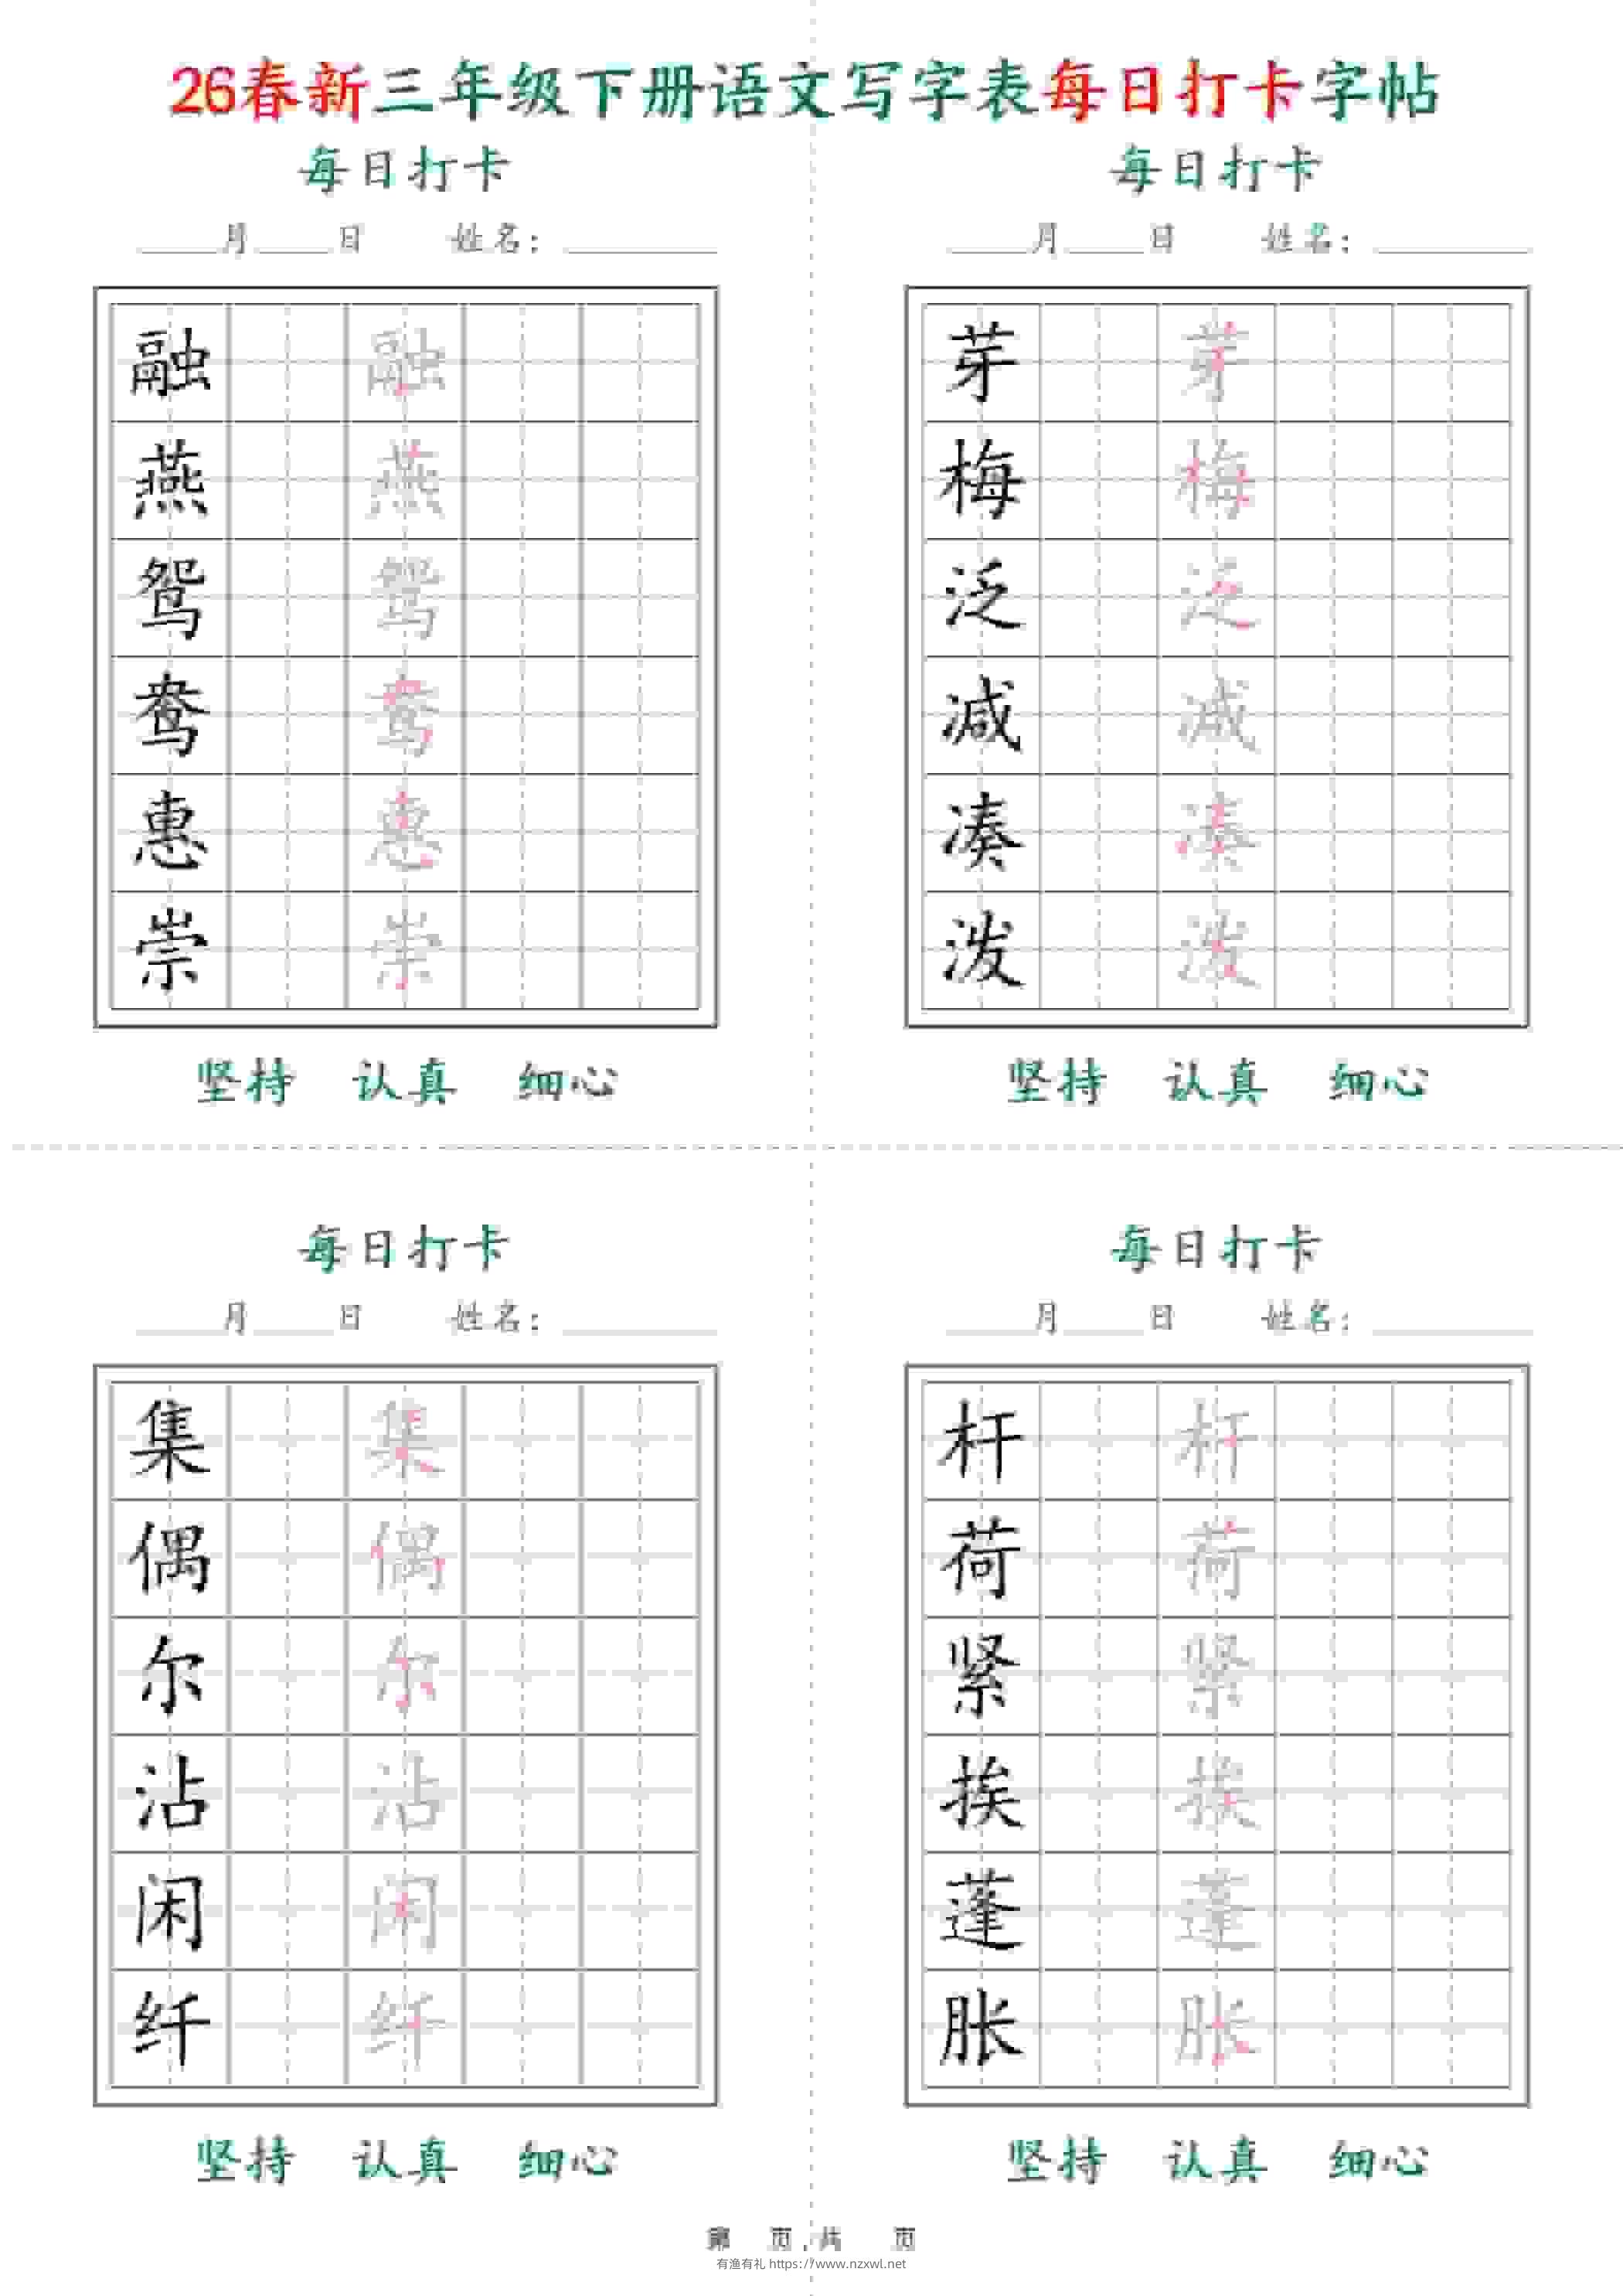 26春新三年级下册语文写字表每日打卡字帖
每日打卡
____月____日 姓名：________
融 融
燕 燕
鸳 鸳
鸯 鸯
惠 惠
崇 崇
坚持 认真 细心
每日打卡
____月____日 姓名：________
芽 芽
梅 梅
泛 泛
减 减
凑 凑
泼 泼
坚持 认真 细心
每日打卡
____月____日 姓名：________
集 集
偶 偶
尔 尔
沾 沾
闲 闲
纤 纤
坚持 认真 细心
每日打卡
____月____日 姓名：________
杆 杆
荷 荷
紧 紧
挨 挨
蓬 蓬
胀 胀
坚持 认真 细心
第 页,共 页
有渔有礼 https://www.nzxwl.net